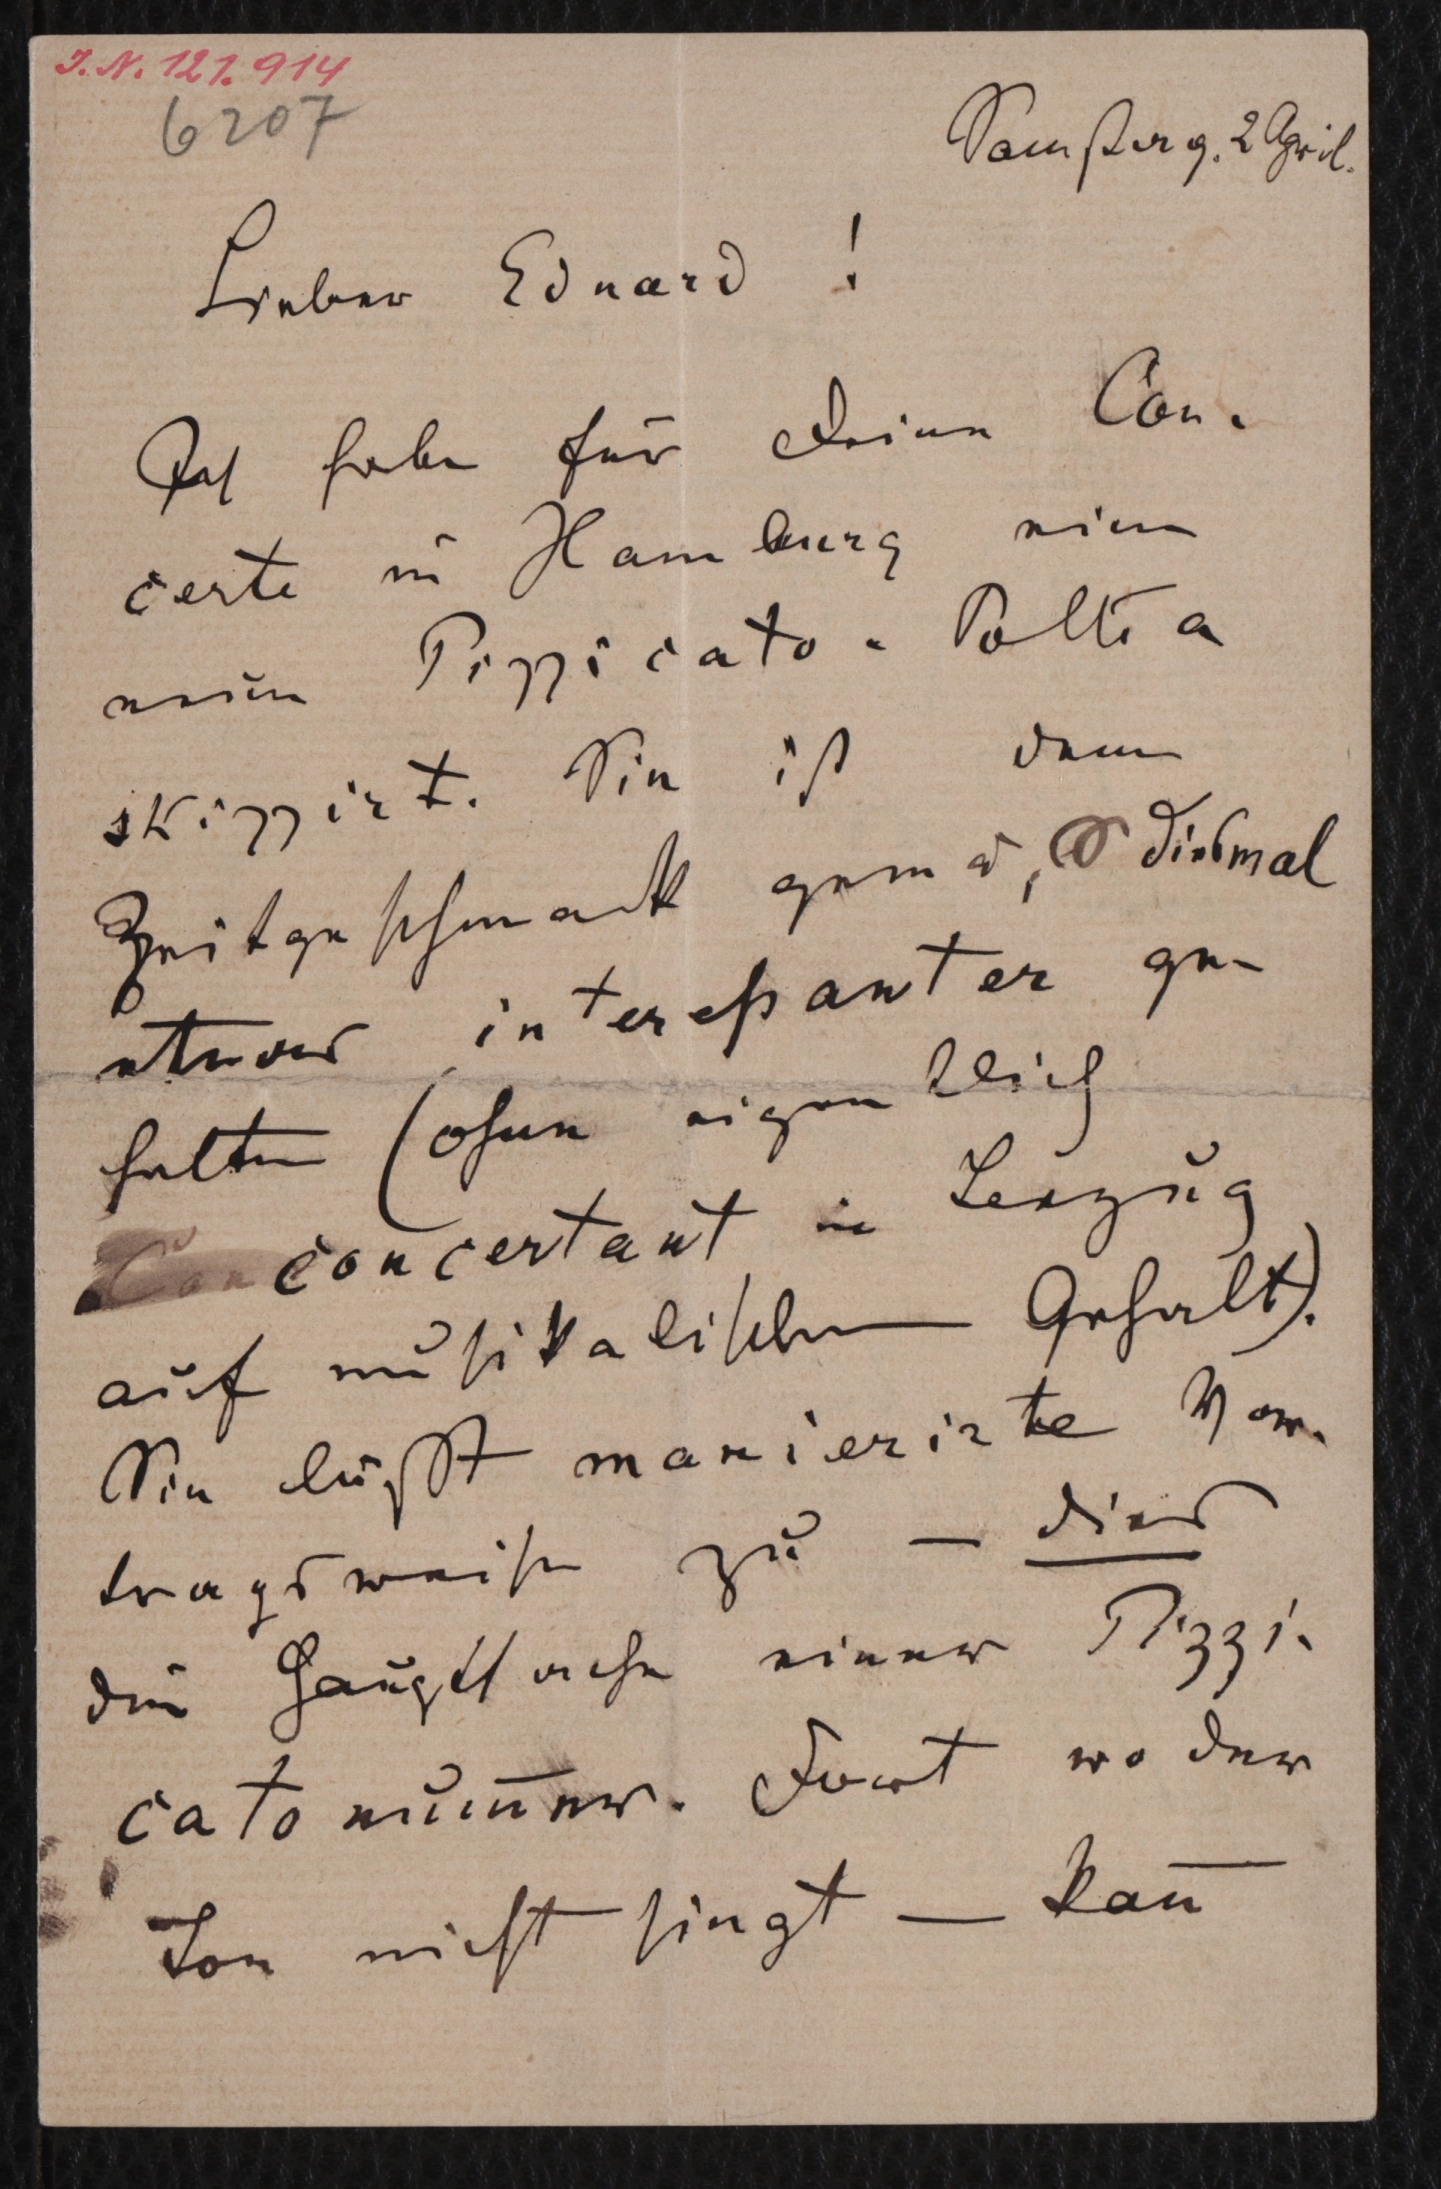 I. N. 121.914
6207
Samstag. 2 April.
Lieber Eduard !
Ich habe für Deine Con-
certe in Hamburg eine
neue Pizzicato-Polka
skizzirt. Sie ist dem
Zeitgeschmack gemäß, diesmal
etwas interessanter ge-
halten (ohne eigentlich
concertant in Bezug
auf musikalischen Gehalt).
Sie läßt manierirte Vor-
tragsweise zu — dies
die Hauptsache einer Pizzi-
catonum̄er. Dort wo der
Ton nicht singt — kan̄